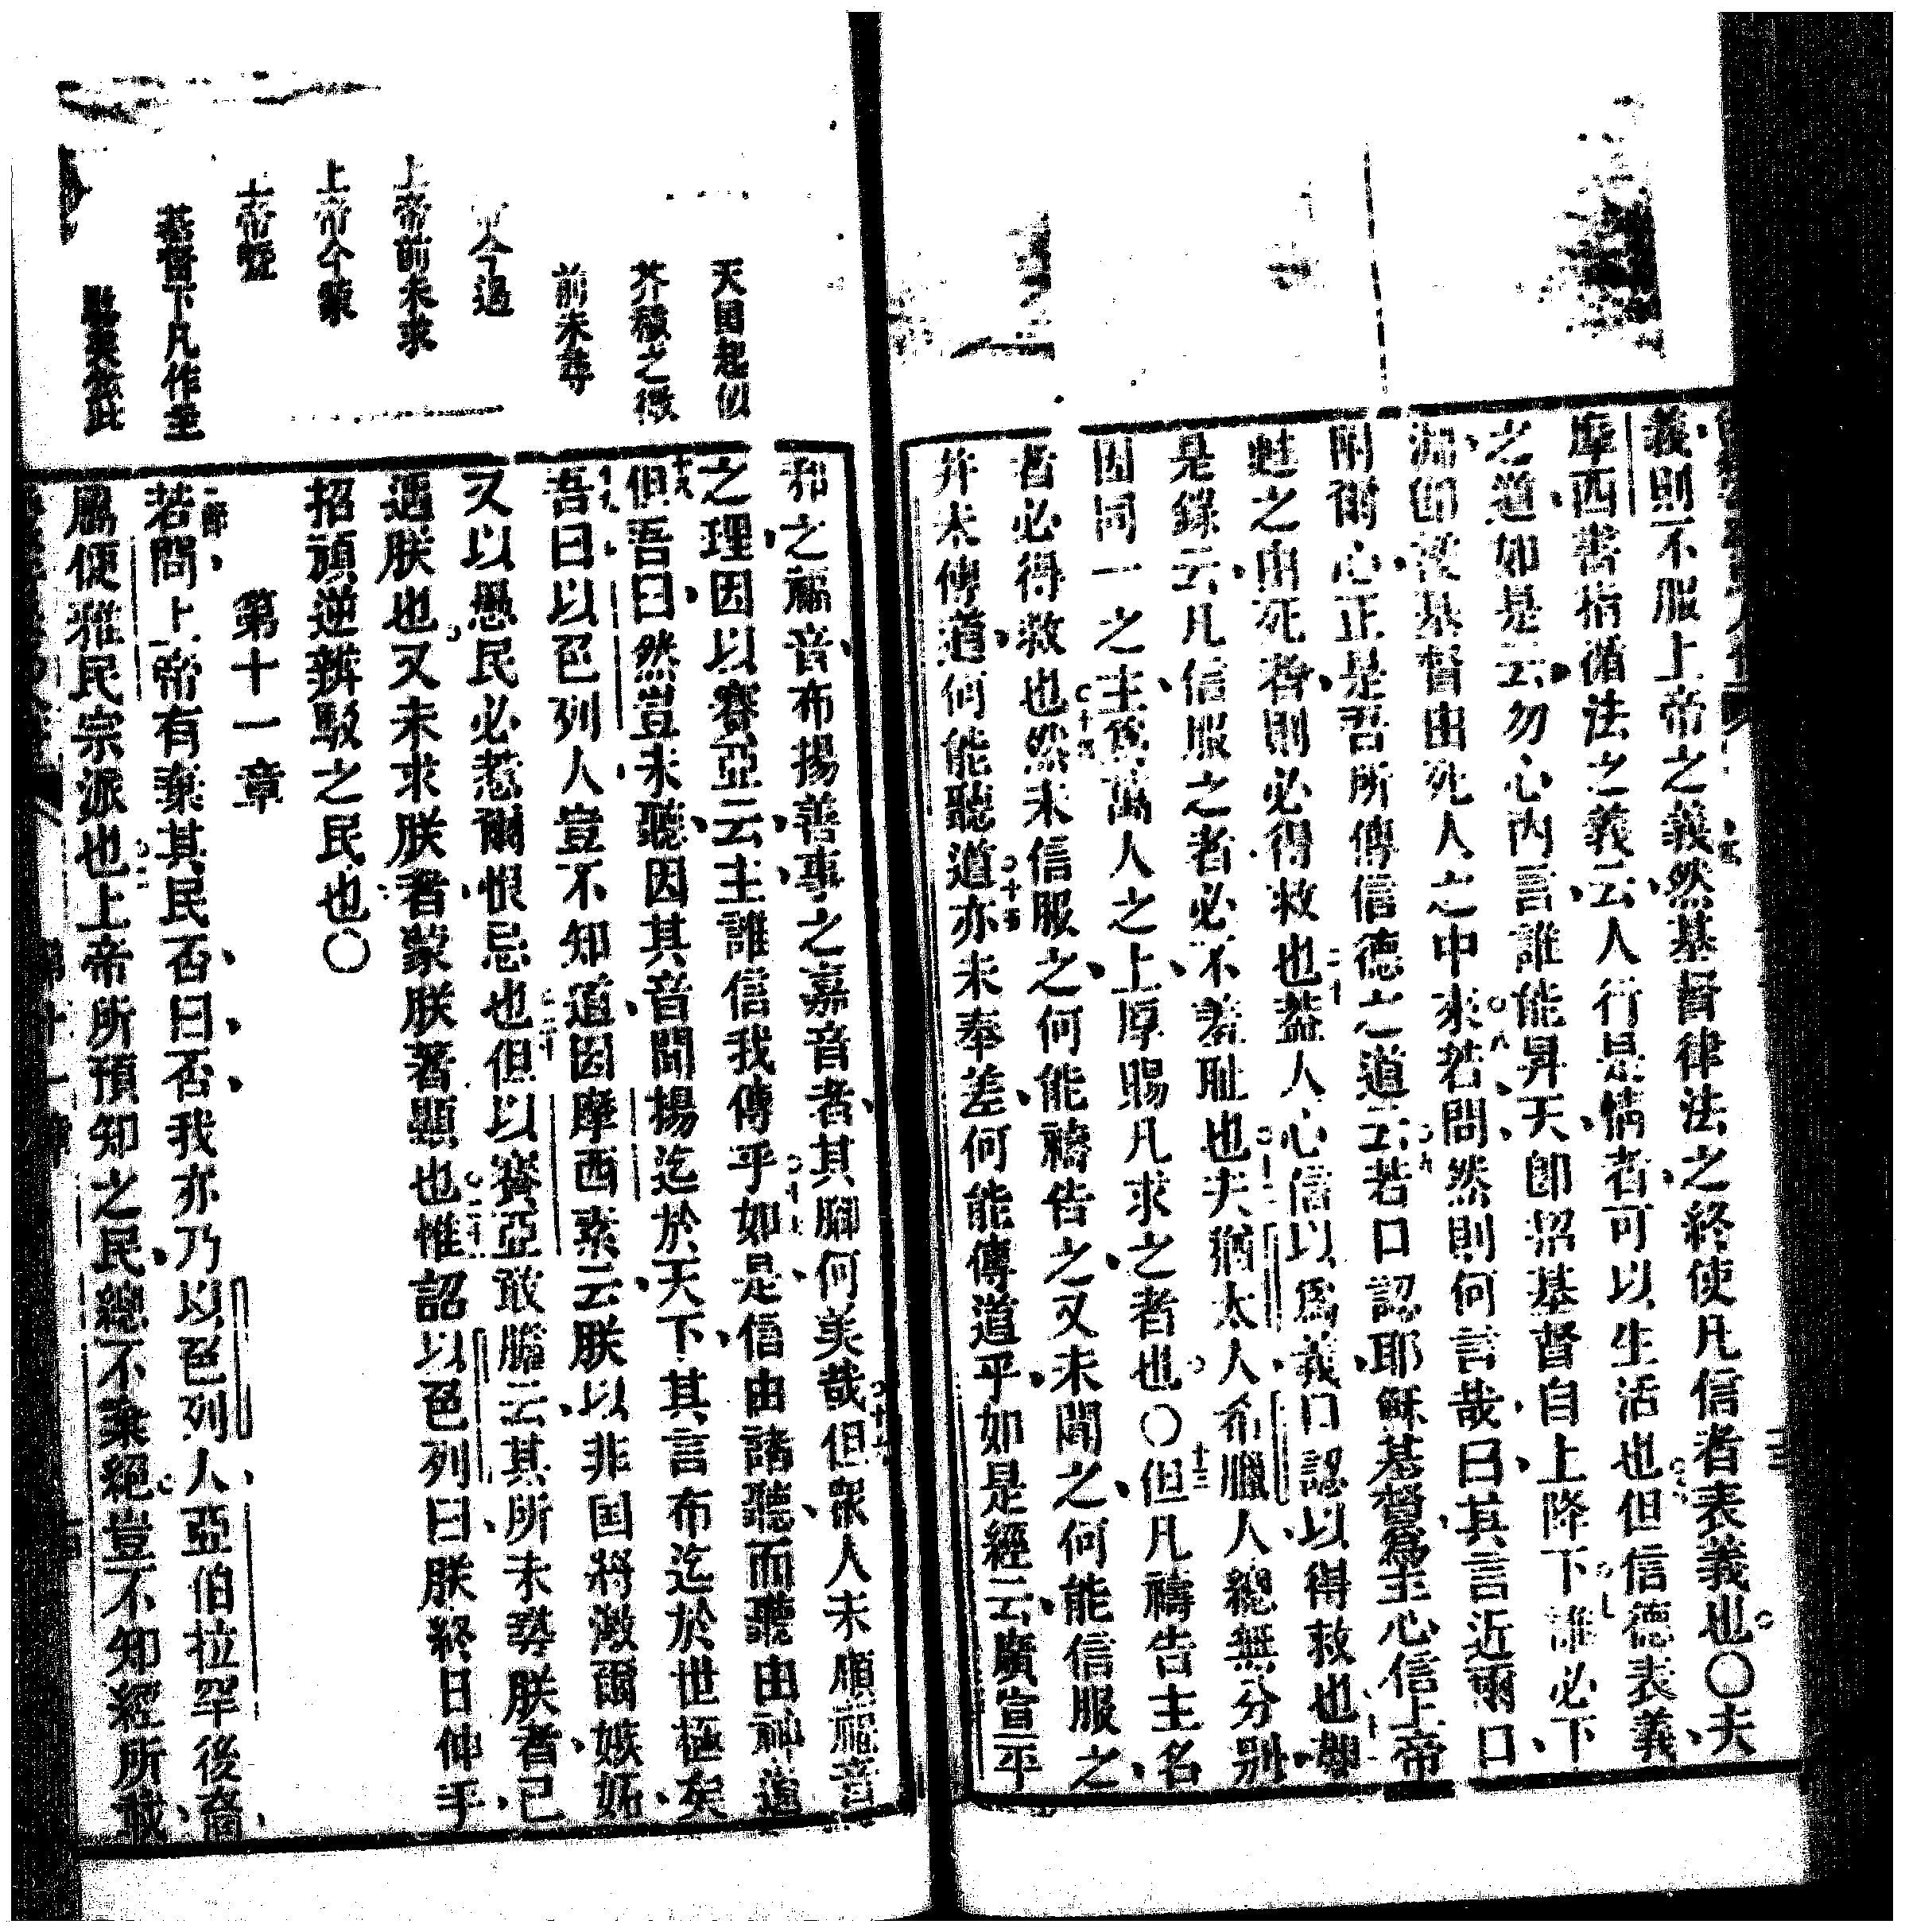 義則不服上帝之義然基督律法之終使凡信者表義也〇夫
摩西書指循法之義云人行是情者可以生活也但信德表義
之道如是云勿心內言誰能昇天卽招基督自上降下誰必下
淵卽敎基督由死人之中來若問然則何言哉曰其言近爾口
附爾心正是吾所傳信德之道云若口認耶穌基督爲主心信上帝
甦之由死者則必得救也蓋人心信以爲義口認以得救也
是錄云凡信服之者必不羞恥也夫猶太人希臘人總無分別
因同一之主爲萬人之上厚賜凡求之者也〇但凡禱告主名
者必得救也然未信服之何能禱告之又未聞之何能信服之
并未傳道何能聽道亦未奉差何能傳道乎如是經云廣宣平
和之福音布揚善事之嘉音者其腳何美哉但衆人未順福音
之理因以賽亞云主誰信我傳乎如是信由諸聽而聽由神道
但吾曰然豈未聽因其音聞揚迄於天下其言布迄於世極矣
吾曰以色列人豈不知道因摩西素云朕以非国將激爾嫉妬
又以愚民必惹爾恨忌也但以賽亞敢膽云其所未尋朕者已
遇朕也又未求朕者蒙朕著顯也惟詔以色列曰朕終日伸手
招頑逆辨駁之民也〇
第十一章
若問上帝有棄其民否曰否我亦乃以色列人亞伯拉罕後裔
屬便雅民宗派也上帝所預知之民總不棄絕豈不知經所載
天国起似
芥種之微
前未尋
今遇
上帝前未求
上帝今蒙
上帝
基督下凡作主